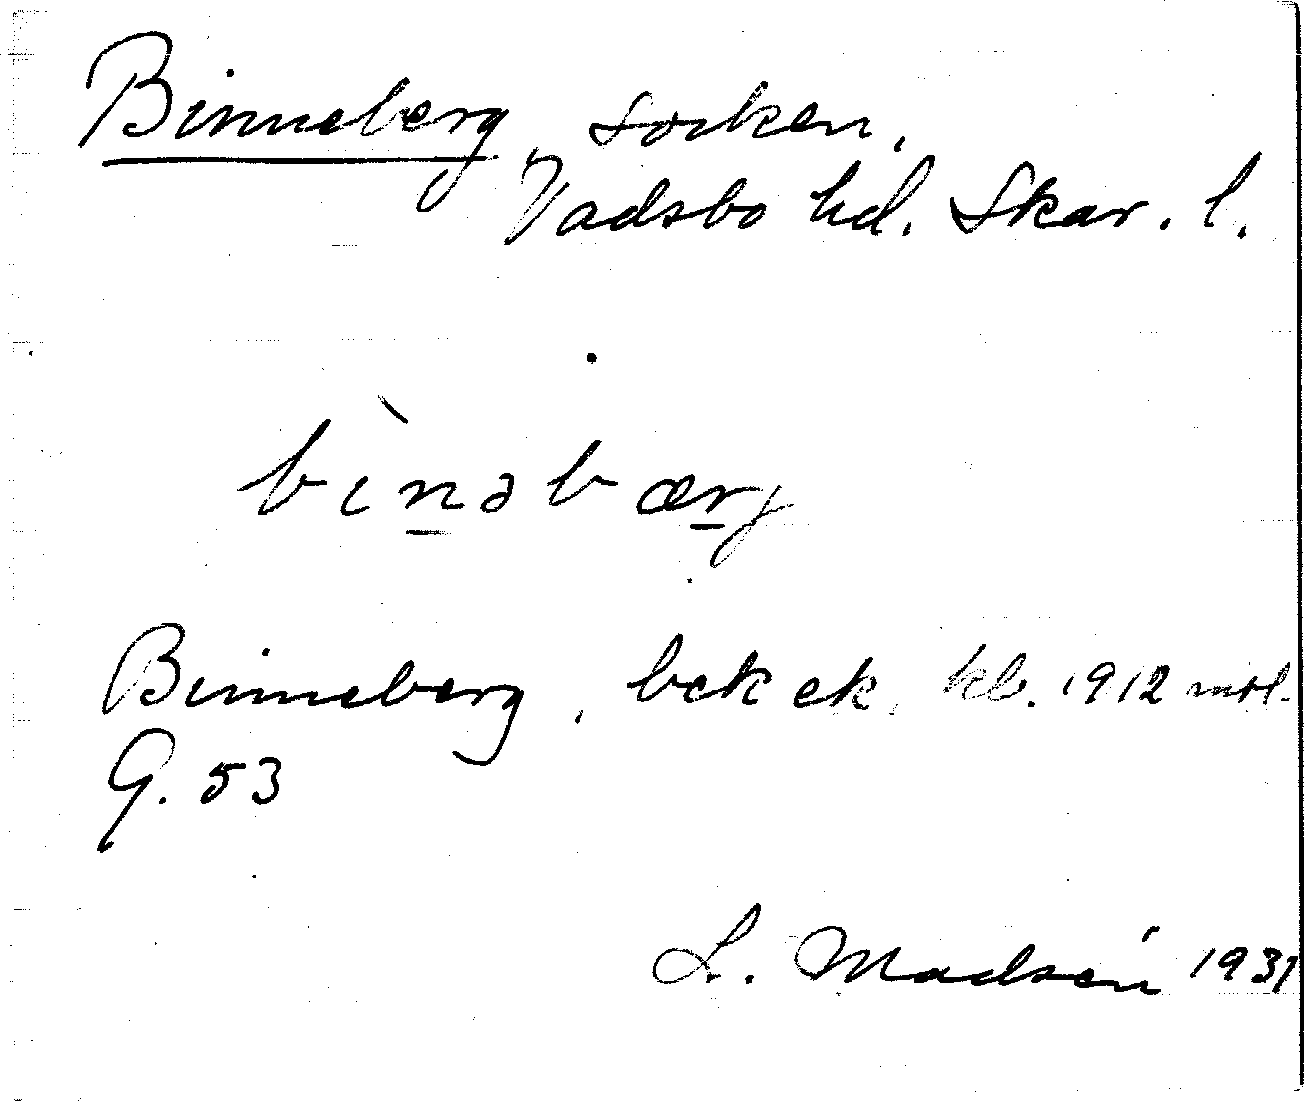 Binneberg socken,
Vadsbo hd. Skar. l.
bìnəbærj
Binneberg, bek ek. kb. 1912
G. 53
L. Madsén 1931